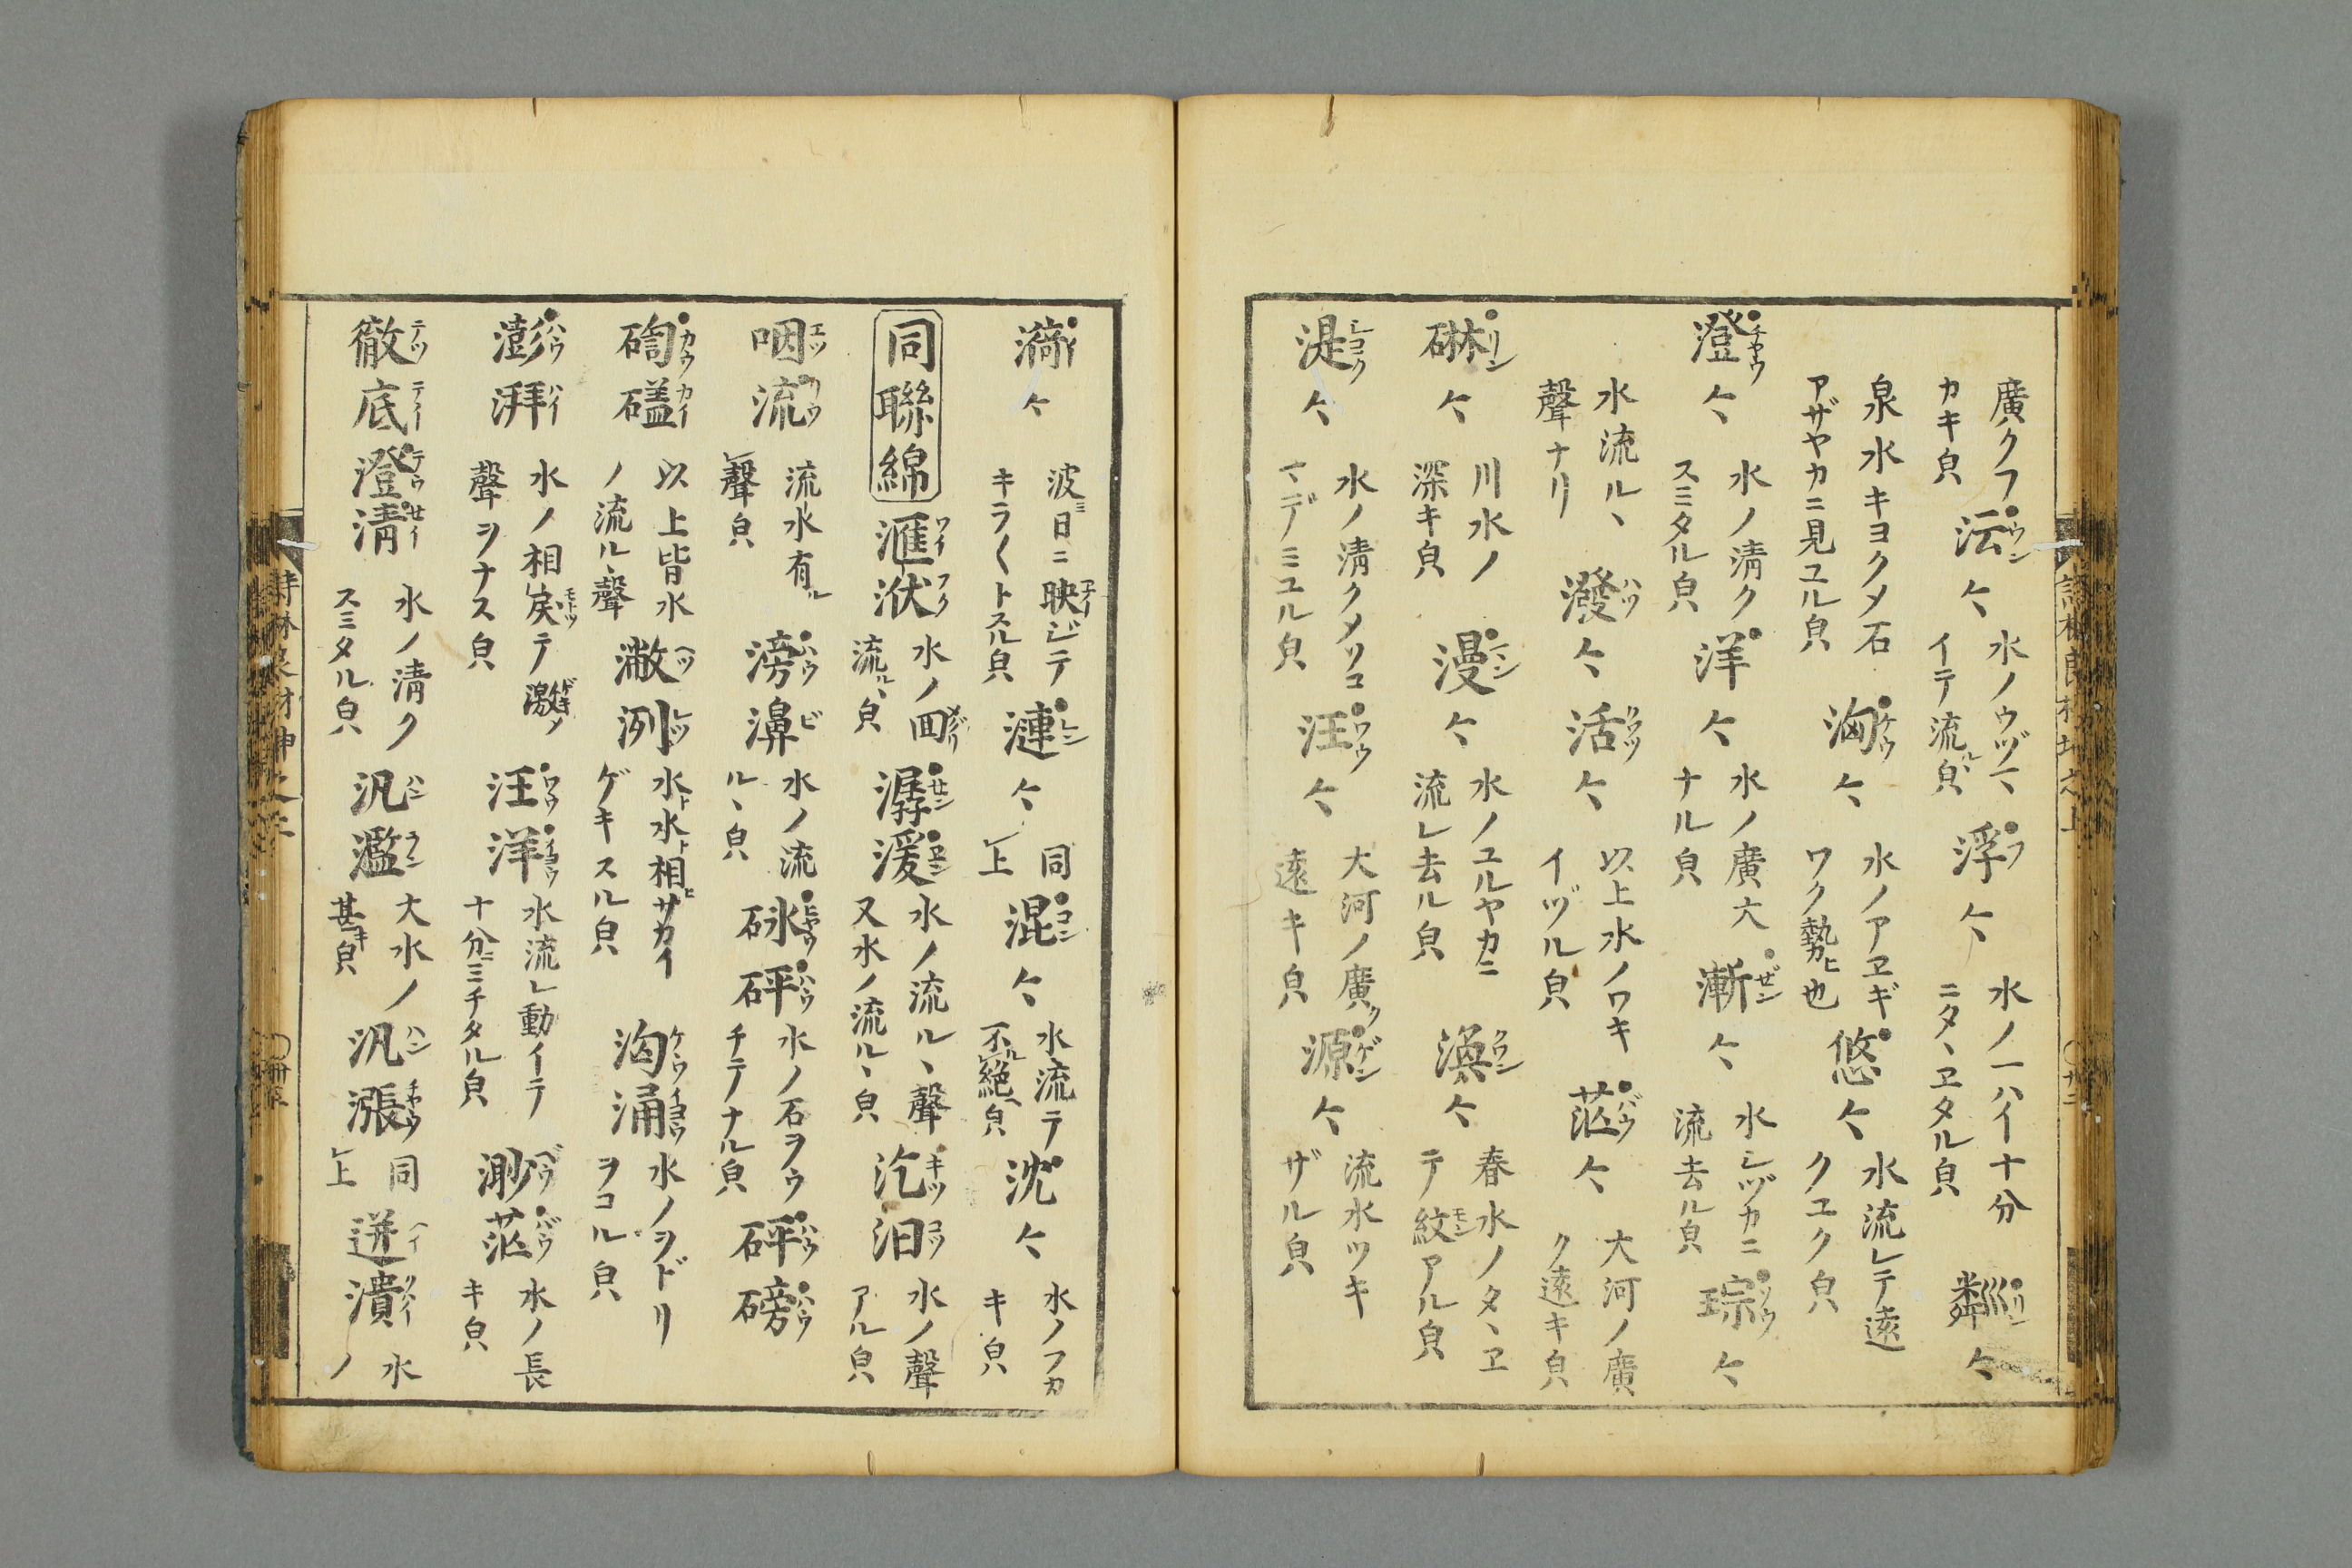 廣クフカキ皃 沄々 水ノウヅマイテ流ル丶皃 浮々 水ノ一ハイ十分ニタ丶ヱタル皃 粼々
泉水キヨクメ石アザヤカニ見ユル皃 洶々 水ノアヱギワク勢ヒ也 悠々 水流レテ遠クユク皃
澄々 水ノ淸クスミタル皃 洋々 水ノ廣大ナル皃 漸々 水シヅカニ流去ル皃 琮々
水流ル丶聲ナリ 潑々 活々 以上水ノワキイヅル皃 茫々 大河ノ廣ク遠キ皃
碄々 川水ノ深キ皃 漫々 水ノユルヤカニ流レ去ル皃 渙々 春水ノタ丶ヱテ紋アル皃
湜々 水ノ淸クメソコマデミユル皃 汪々 大河ノ廣ク遠キ皃 源々 流水ツキザル皃
漪々 波日ニ映ジテキラ〱トスル皃 漣々 同上 混々 水流テ不絕皃 沈々 水ノフカキ皃
同聯綿 滙洑 水ノ回リ流ル丶皃 潺湲 水ノ流ル丶聲又水ノ流ル丶皃 汔汨 水ノ聲アル皃
咽流 流水有聲皃 滂濞 水ノ流ル丶皃 砯砰 水ノ石ヲウチテナル皃 砰磅
礚 以上皆水ノ流ル丶聲 潎洌 水ト水ト相サカイゲキスル皃 洶涌 水ノヲドリヲコル皃
澎湃 水ノ相戾テ激メ聲ヲナス皃 汪洋 水流レ動イテ十分ニミチタル皃 渺茫 水ノ長キ皃
徹底澄淸 水ノ淸クスミタル皃 汎濫 大水ノ甚キ皃 汎漲 同上 迸潰 水ノ